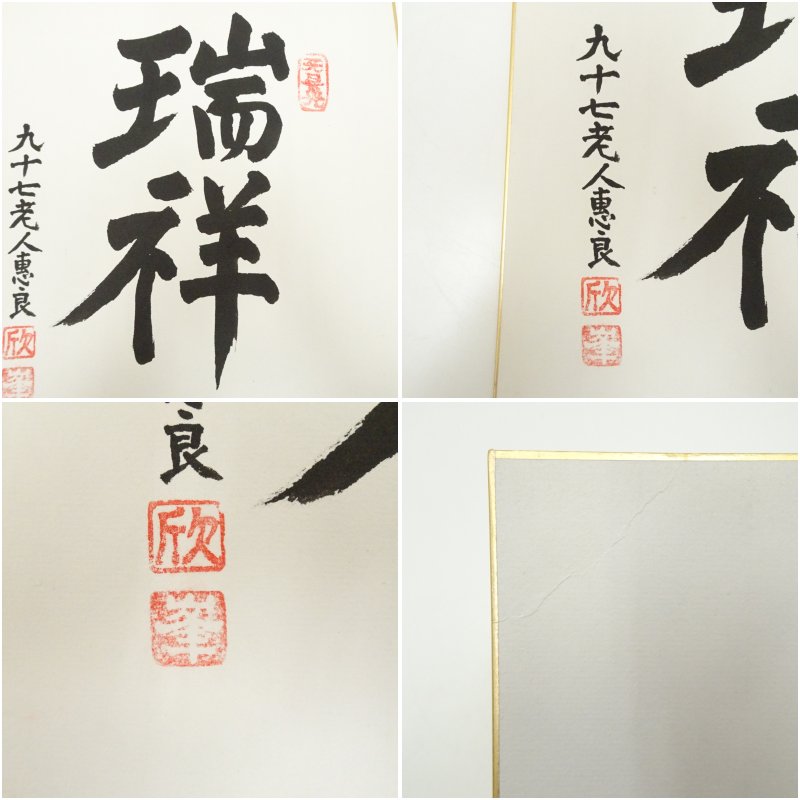 瑞祥
九十七老人惠良
欣
華
九十七老人惠良
欣
華
良
欣
華